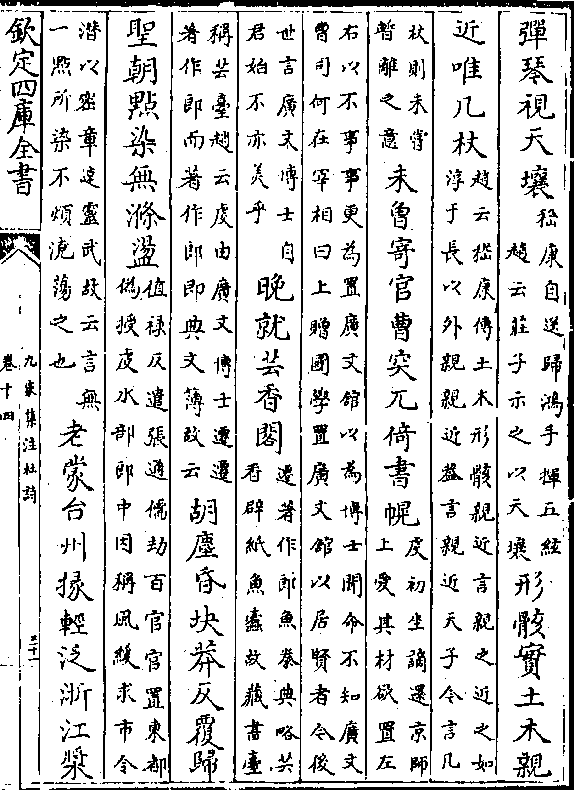 彈琴視天壤
嵇康自送歸鴻手揮五絃
趙云莊子示之以天壤
形骸實土木親
近唯几杖
趙云嵇康傳土木形骸親近言親之近之如
淳于長以外親親近蓋言親近天子今言几
杖則未嘗
暫離之意
未曾寄官曹突兀倚書幌
虔初坐謫還京師
上愛其材欲置左
右以不事事更為置廣文館以為博士聞命不知廣文
曹司何在宰相曰上贈國學置廣文館以居賢者令後
世言廣文博士自
君始不亦美乎
晚就芸香閣
遷著作郎魚豢典略芸
香辟紙魚蠹故藏書臺
稱芸臺趙云虔由廣文博士遷遷
著作郎而著作郎即典文薄故云
胡塵昏坱莽反覆歸
聖朝點染無滌盪
值祿反遣張通儒劫百官官置東都
偽授虔水部郎中因稱風緩求市令
潛以密章達靈武故云言無
一點所染不煩滌蕩之也
老蒙台州掾輕泛浙江槳
欽定四庫全書
九家集注杜詩
卷十四
三十一